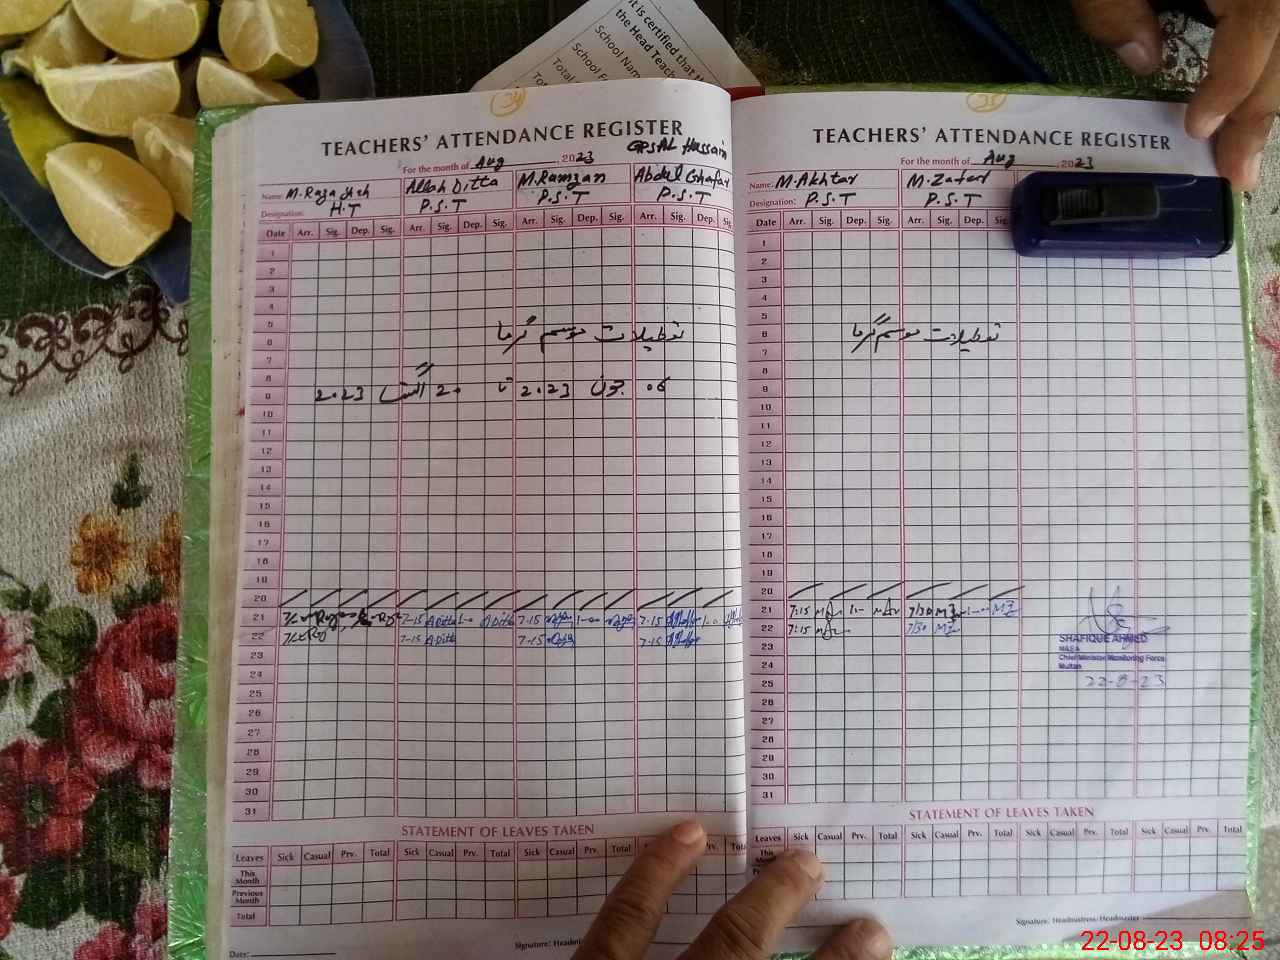 it is certified that th
the Head Teach
School Nam
School F
Total
34
TEACHERS' ATTENDANCE REGISTER
GPS AL Hussain
For the month of Aug, 2023
Name: M. Raza Shah Allah Ditta M. Ramzan Abdul Ghafar
Designation: H.T P.S.T P.S.T P.S.T
Date Arr. Sig. Dep. Sig. Arr. Sig. Dep. Sig. Arr. Sig. Dep. Sig. Arr. Sig. Dep. Sig
1
2
3
4
5
6
7
8
9
10
11
12
13
14
15
16
17
18
19
20
21 7-15 ADitta 1-00 ADitta 7-15 1-00 7-15 1-00
22 7-15 ADitta 7-15 7-15
23
24
25
26
27
28
29
30
31
تعطیلات موسم گرما
جون 2023 تا 20 اگست 2023
STATEMENT OF LEAVES TAKEN
Leaves Sick Casual Prv. Total Sick Casual Prv. Total Sick Casual Prv. Total Prv. Tota
This Month
Previous Month
Total
Signature: Headmi
Date:
35
TEACHERS' ATTENDANCE REGISTER
For the month of Aug, 2023
Name: M. Akhtar M. Zafar
Designation: P.S.T P.S.T
Date Arr. Sig. Dep. Sig. Arr. Sig. Dep. Sig
1
2
3
4
5
6
7
8
9
10
11
12
13
14
15
16
17
18
19
20
21 7:15 1-00 7/30 MZ 1-00 MZ
22 7:15 7/30 MZ
23
24
25
26
27
28
29
30
31
تعطیلات موسم گرما
SHAFIQUE AHMED
MEA
Chief Minister Monitoring Force
Multan
22-8-23
STATEMENT OF LEAVES TAKEN
Leaves Sick Casual Prv. Total Sick Casual Prv. Total Sick Casual Prv. Total Sick Casual Prv. Total
This
Signature: Headmistress/Headmaster
22-08-23 08:25